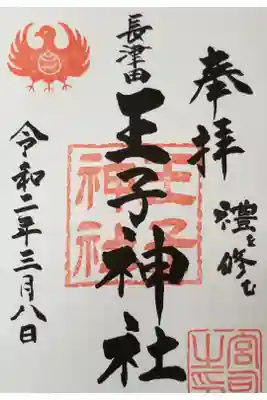 奉拝
禮を修む
長津田
王子神社
令和二年三月八日
王子
神社
宮司
之印